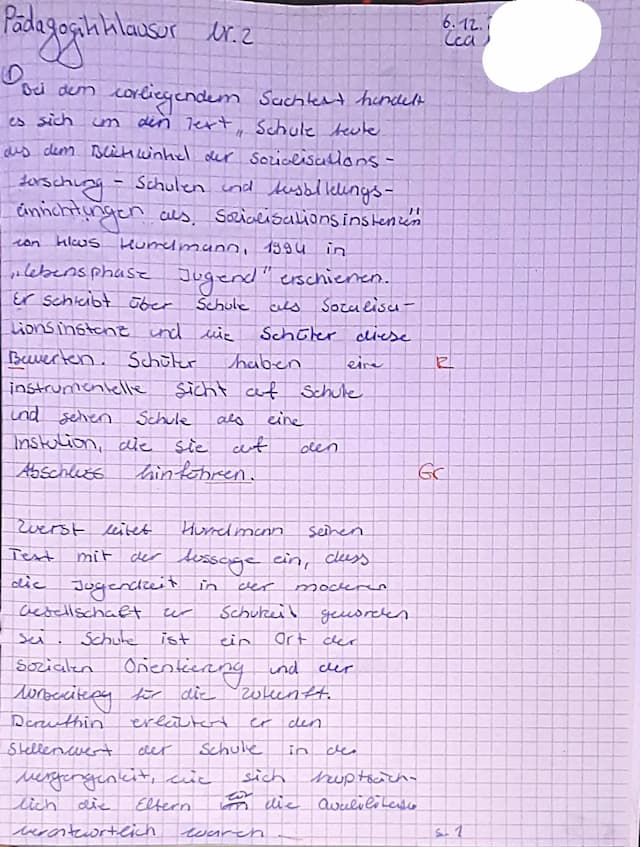 Pädagogikklausur Nr. 2
6.12.
Lea
① Bei dem vorliegendem Sachtext handelt
es sich um den Text „Schule heute
aus dem Blickwinkel der Sozialisations-
forschung - Schulen und Ausbildungs-
einrichtungen als Sozialisationsinstanzen"
von Klaus Hurrelmann, 1994 in
„Lebensphase Jugend" erschienen.
Er schreibt über Schule als Sozialisa-
tionsinstanz und wie Schüler diese
Bewerten. Schüler haben eine R
instrumentelle Sicht auf Schule
und sehen Schule als eine
Instution, die sie auf den
Abschluss hinführen. Gr
Zuerst leitet Hurrelmann seinen
Text mit der Aussage ein, dass
die Jugendzeit in der modernen
Gesellschaft zur Schulzeit geworden
sei. Schule ist ein Ort der
Sozialen Orientierung und der
Vorbereitung für die Zukunft.
Daraufhin erläutert er den
Stellenwert der Schule in der
Vergangenheit, wie sich hauptsäch-
lich die Eltern für die
verantwortlich waren
S. 1